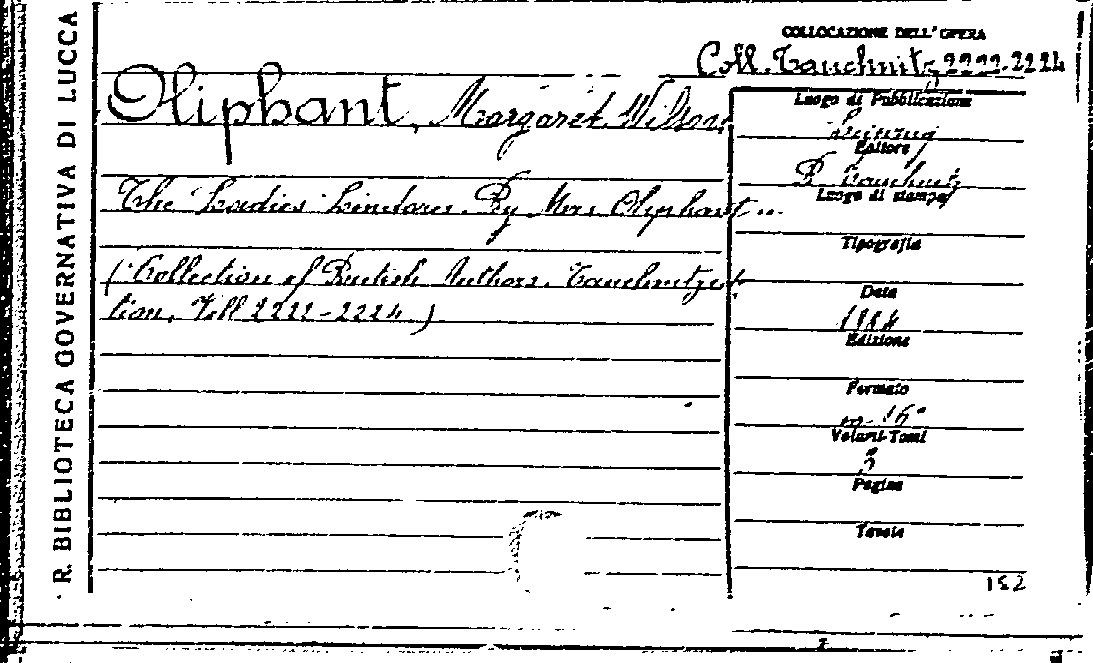 R. BIBLIOTECA GOVERNATIVA DI LUCCA
COLLOCAZIONE DELL'OPERA
Coll. Tauchnitz 2222-2224
Oliphant, Margaret Wilson
The Ladies Lindores. By Mrs Oliphant...
(Collection of British Authors. Tauchnitz edi-
tion, Voll 2222-2224.)
Luogo di Pubblicazione
Leipzig
Editore
B. Tauchnitz
Luogo di stampa
Tipografia
Data
1884
Edizione
Formato
in-16°
Volumi-Tomi
3
Pagine
Tavole
152